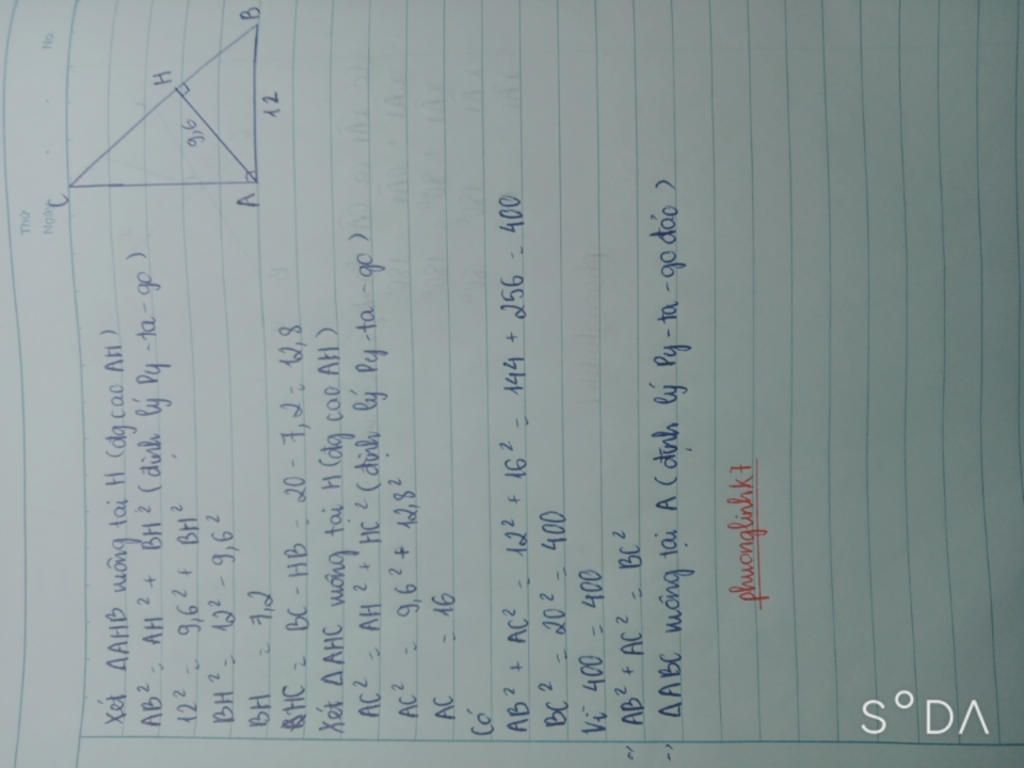 Thứ
Ngày
No.
C
H
B
9,6
A
12
Xét ΔAHB vuông tại H (đg cao AH)
AB² = AH² + BH² (định lý Py-ta-go)
12² = 9,6² + BH²
BH² = 12² - 9,6²
BH = 7,2
HC = BC - HB = 20 - 7,2 = 12,8
Xét ΔAHC vuông tại H (đg cao AH)
AC² = AH² + HC² (định lý Py-ta-go)
AC² = 9,6² + 12,8²
AC = 16
Có
AB² + AC² = 12² + 16² = 144 + 256 = 400
BC² = 20² = 400
Vì 400 = 400
~, AB² + AC² = BC²
~, ΔABC vuông tại A (định lý Py-ta-go đảo)
phuonglinhk7
S°DA